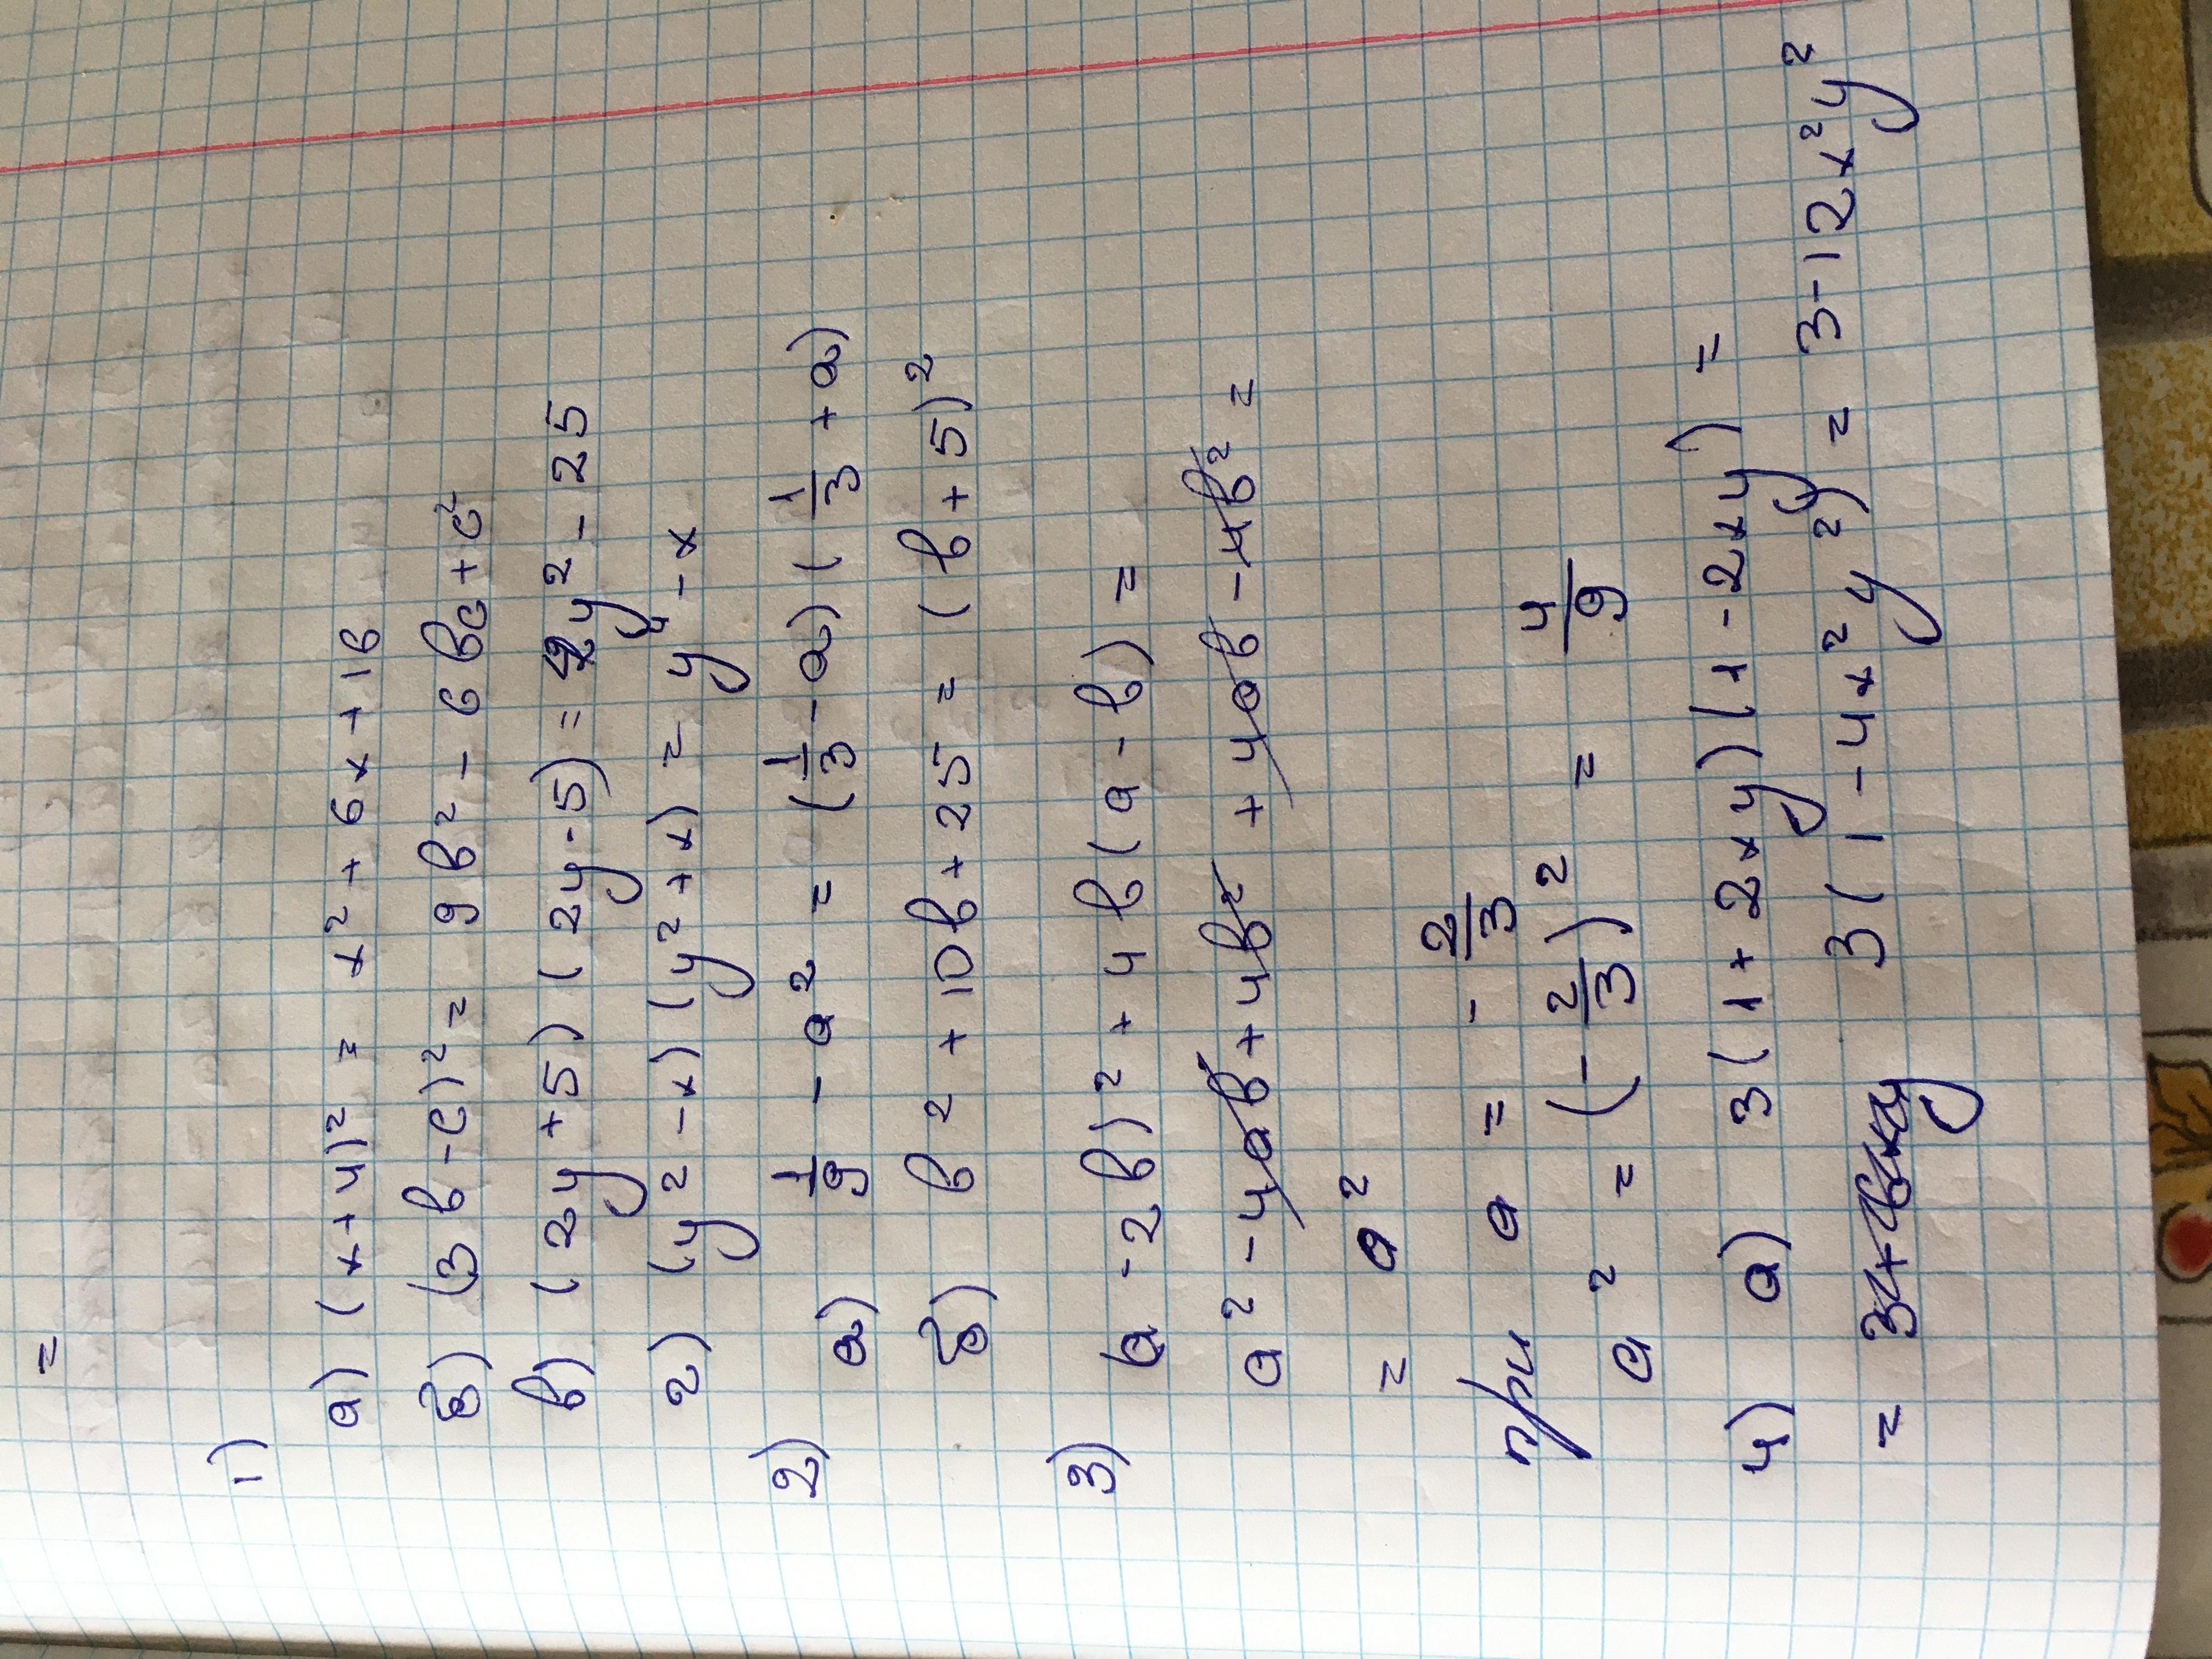 =
1)
а) (x+4)² = x² + 6x + 16
б) (3b-c)² = 9b² - 6bc + c²
в) (2y+5)(2y-5) = 4y² - 25
г) (y²-x)(y²+x) = y⁴ - x
2) а) 1/9 - a² = (1/3 - a)(1/3 + a)
б) b² + 10b + 25 = (b+5)²
3) (a-2b)² + 4b(a-b) =
a² - 4ab + 4b² + 4ab - 4b² =
= a²
при a = - 2/3
a² = (-2/3)² = 4/9
4) а) 3(1+2xy)(1-2xy) =
= 3(1-4x²y²) = 3-12x²y²